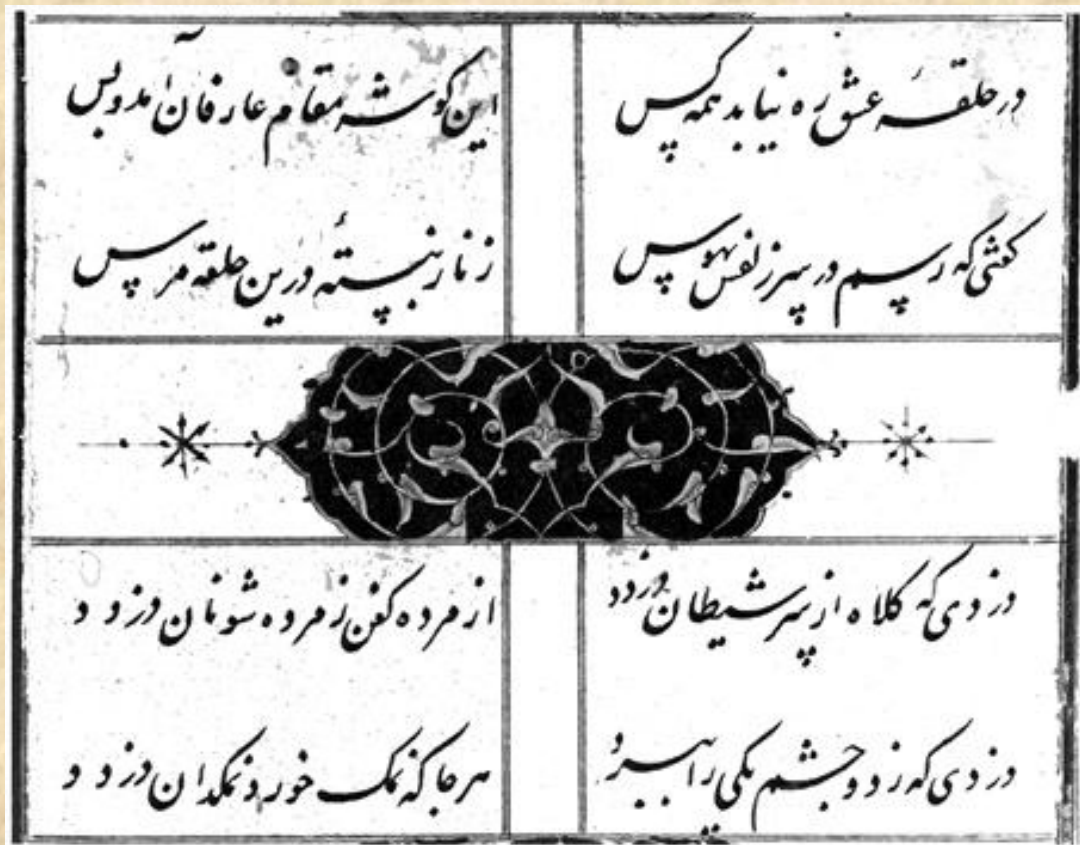 در حلقهٔ عشق ره نیابد همه کس
این کوشه مقام عارفان آمد و بس
که رسم در سر بهوس
زنار نبستهٔ درین حلقه مرس
دزدی که کلاه از سر شیطان دزدد
از مرده کفن ز مرده شو نان دزدد
دزدی که ز دو چشم یکی را ببرد
هر جا که نمک خورد نمکدان دزدد